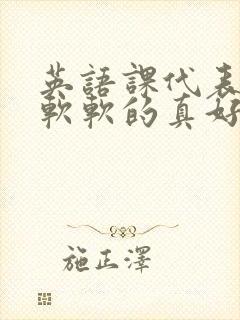 英語課代表
軟軟的真好
施正澤